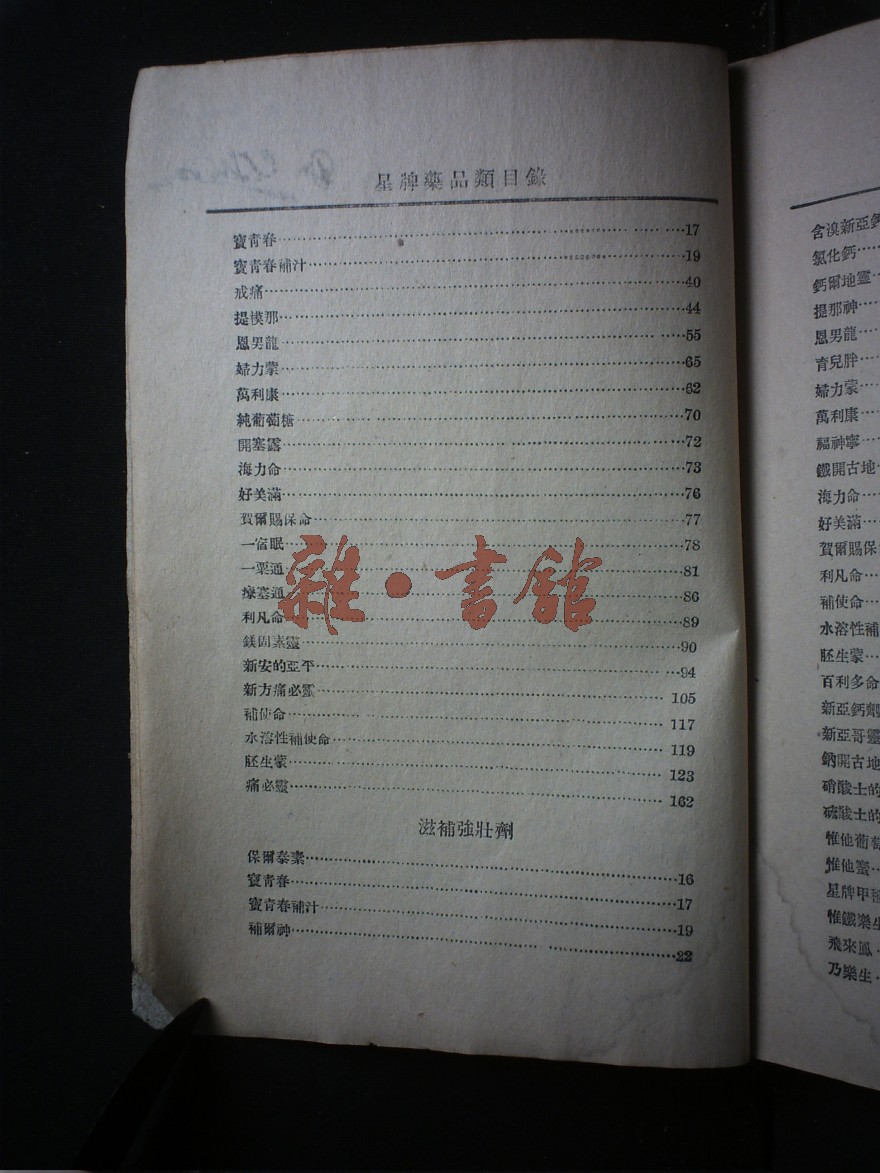 星牌藥品類目錄
寶青春 17
寶青春補汁 19
戒痛 40
提模那 44
恩男龍 55
婦力蒙 65
萬利康 62
純葡萄糖 70
開塞露 72
海力命 73
好美滿 76
賀爾賜保命 77
一宿眠 78
一粟通 81
療塞通 86
利凡命 89
鎂固素靈 90
新安的亞平 94
新方痛必靈 105
補使命 117
水溶性補使命 119
胚生蒙 123
痛必靈 162
滋補強壯劑
保爾泰素 16
寶青春 17
寶青春補汁 19
補爾神 22
雜·書館
含溴新亞鈣
氯化鈣
鈣爾地靈
提那神
恩男龍
育兒胖
婦力蒙
萬利康
福神寧
鐵開古地
海力命
好美滿
賀爾賜保
利凡命
補使命
水溶性補
胚生蒙
百利多命
新亞鈣劑
新亞哥靈
鈉開古地
硝酸士的
硫酸士的
惟他葡萄
惟他蜜
星牌甲種
惟鐵樂生
飛來鳳
乃樂生